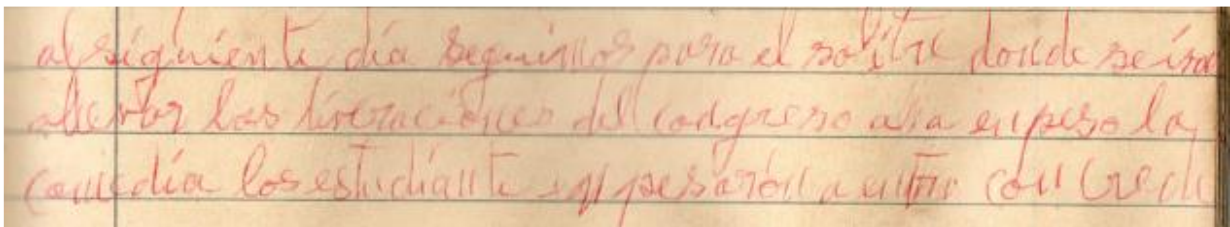 al siguiente día seguimos para el salitre donde seiva
allevar las liveraciones del congreso alla enpeso la
comedia los estudiante enpesaron a entrar con crede